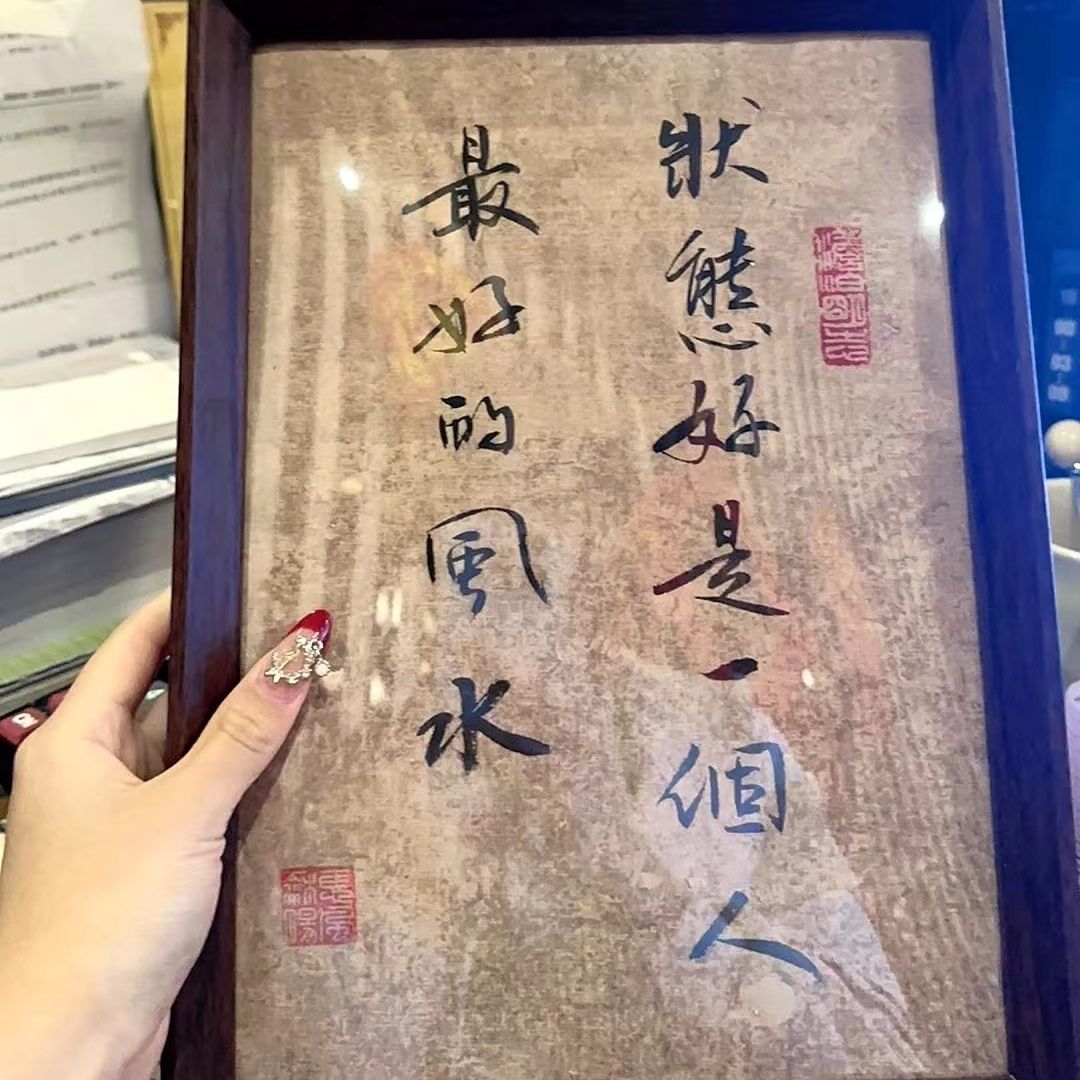 狀態好是一個人
最好的風水